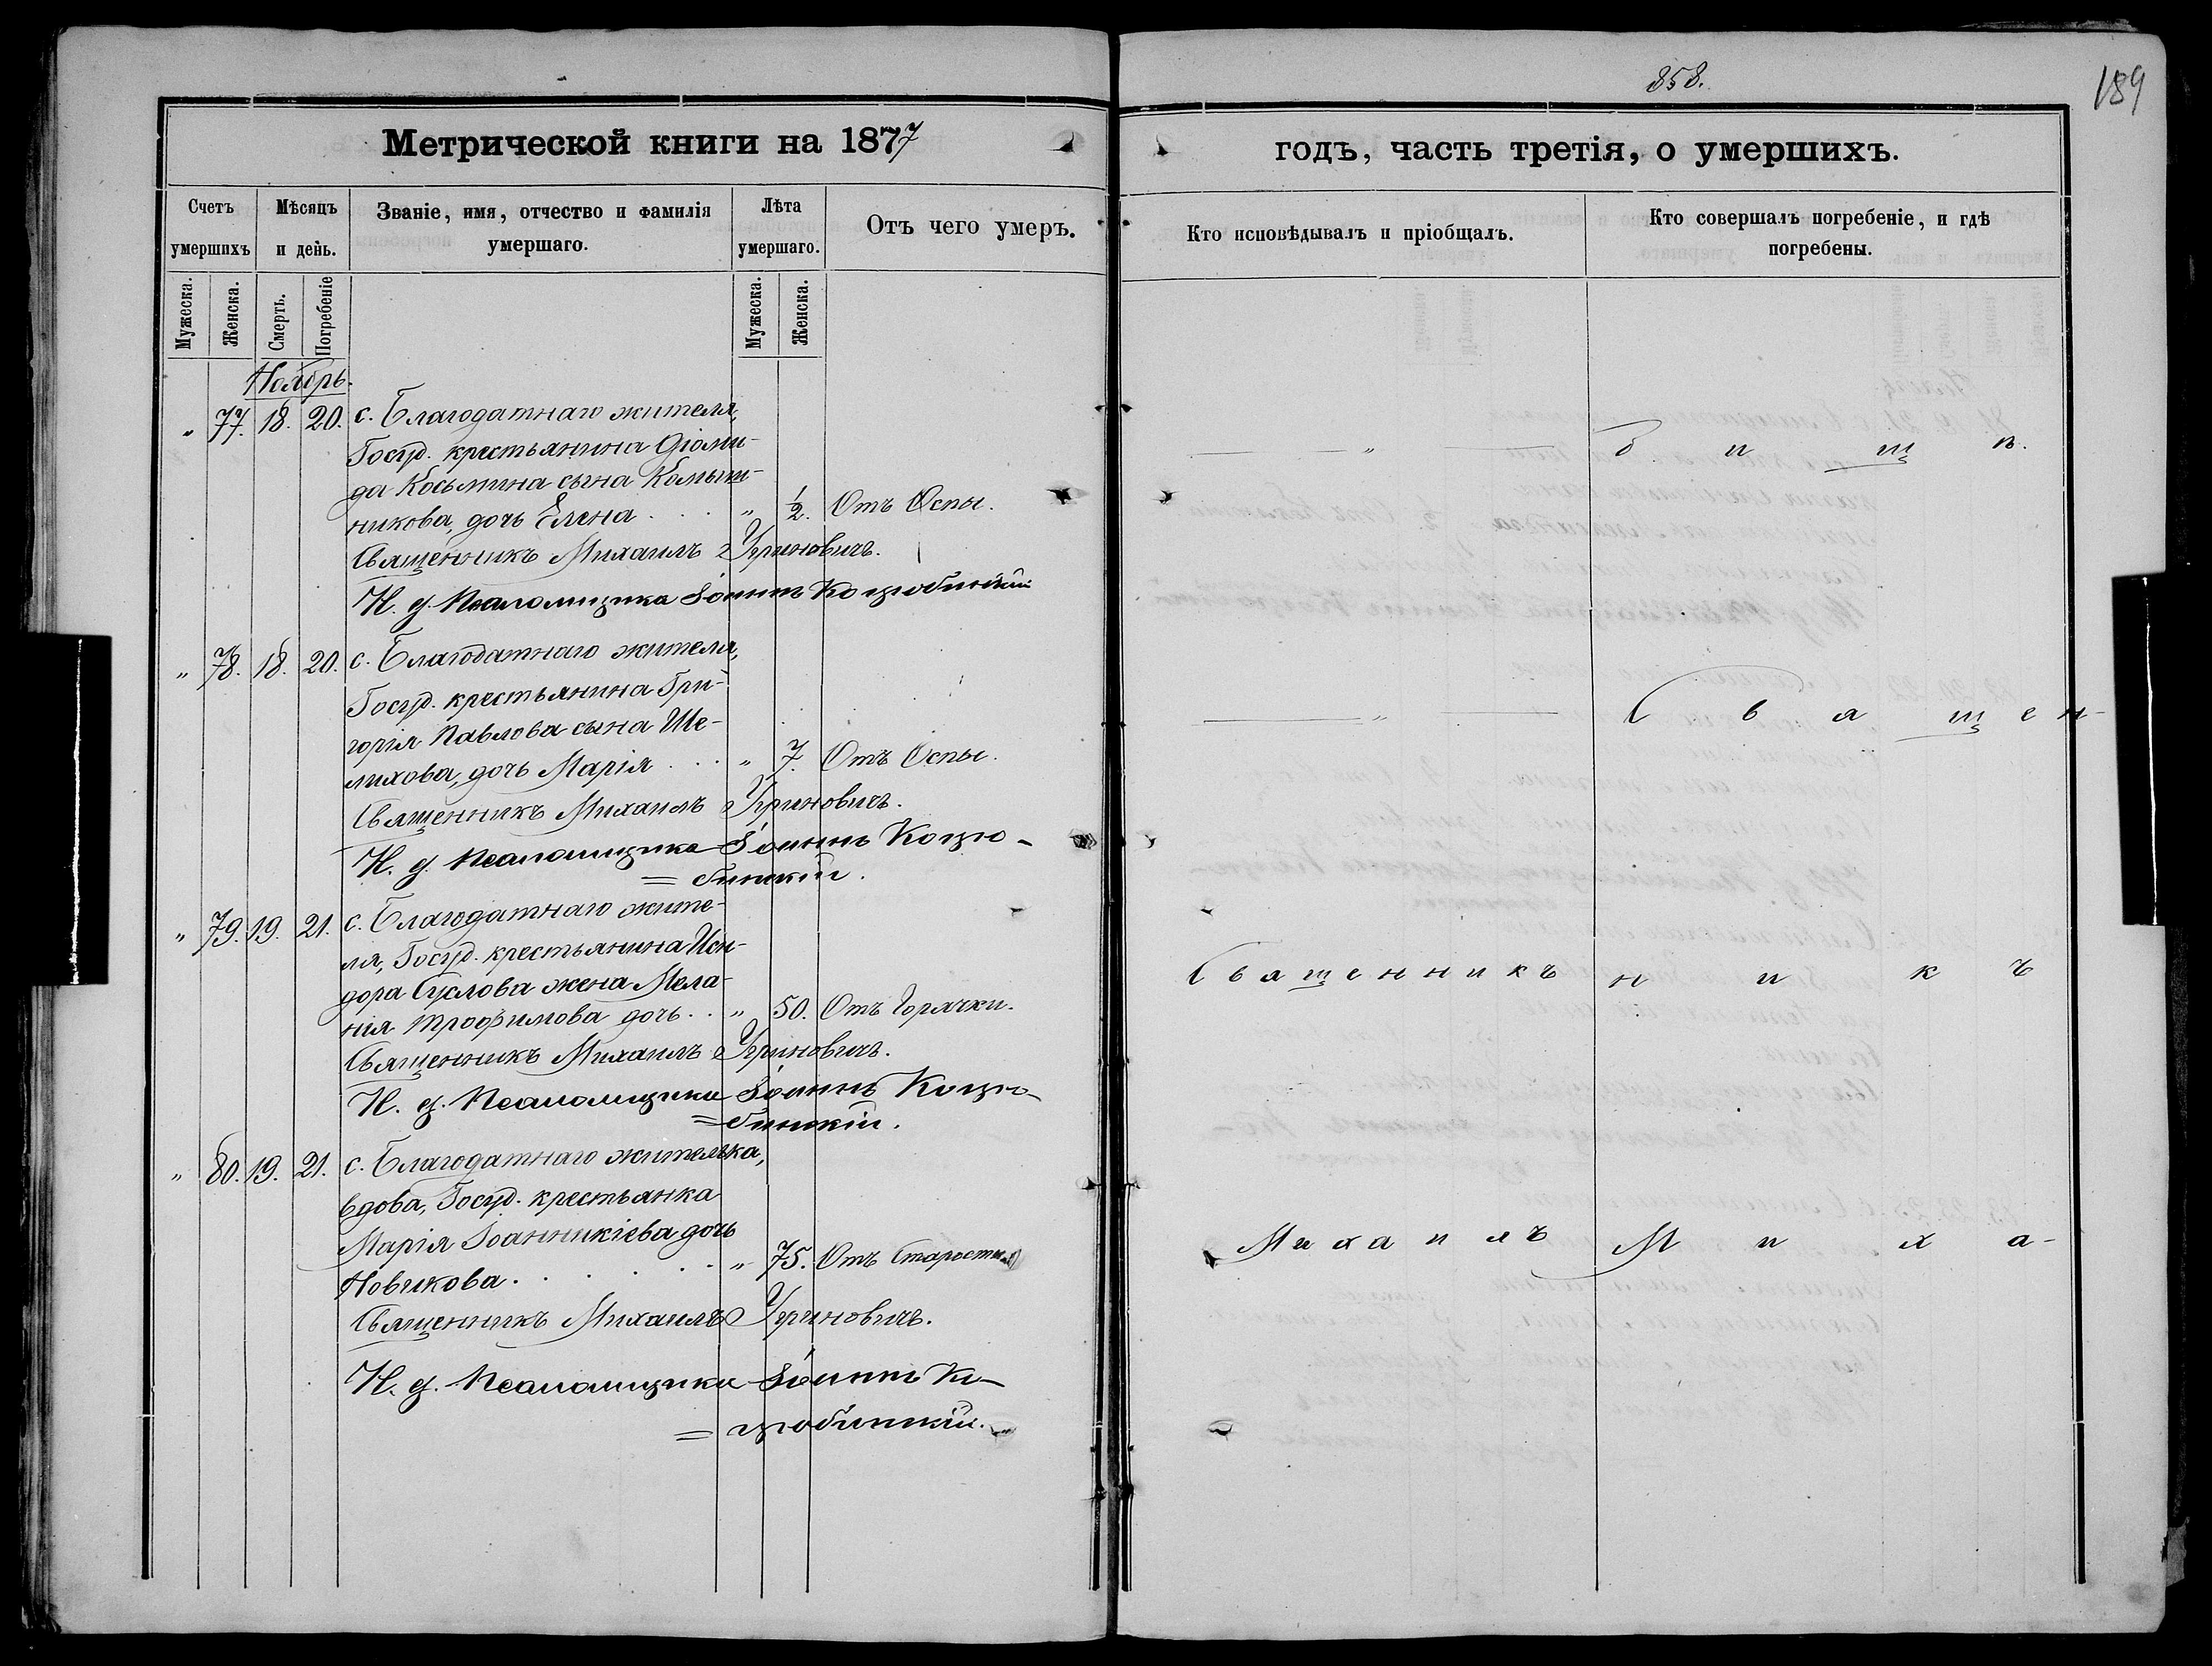 858.
189
Метрической книги на 1877
годъ, часть третія, о умершихъ.
Счетъ умершихъ
Мѣсяцъ и день.
Званіе, имя, отчество и фамилія умершаго.
Лѣта умершаго.
Отъ чего умеръ.
Кто исповѣдывалъ и пріобщалъ.
Кто совершалъ погребеніе, и гдѣ погребены.
Мужеска.
Женска.
Смерть.
Погребеніе
Мужеска.
Женска.
Ноябрь.
" 77. 18. 20. с. Благодатнаго жителя,
Госуд. крестьянина Діоми-
да Косьмина сына
никова, дочь Елена . . . " ½. Отъ Оспы.
Священникъ Михаилъ Угриновичъ.
И. д. Псаломщика Іоаннъ Коцюбинскій
" 78. 18. 20. с. Благодатнаго жителя,
Госуд. крестьянина Гри-
горія Павлова сына Ше-
лихова, дочь Марія . . . " 7. Отъ Оспы.
Священникъ Михаилъ Угриновичъ.
И. д. Псаломщика Іоаннъ Коцю-
=бинскій.
" 79. 19. 21. с. Благодатнаго жите-
ля, Госуд. крестьянина Иси-
дора Суслова жена Мела-
нія Трофимова дочь . . " 50. Отъ Горячки.
Священникъ Михаилъ Угриновичъ.
И. д. Псаломщика Іоаннъ Коцю-
=бинскій.
" 80. 19. 21. с. Благодатнаго жителька,
вдова, Госуд. крестьянка
Марія Іоанникіева дочь
Новикова . . . . . " 75. Отъ Старости
Священникъ Михаилъ Угриновичъ.
И. д. Псаломщика Іоаннъ Ко-
=цюбинскій.
— — " —
— " —
Священникъ
Михаилъ
Священ-
никъ
Миха-